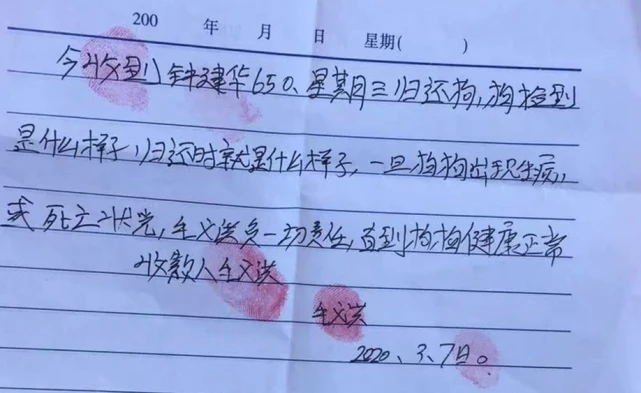 200 年 月 日 星期( )
今收到钟建华650、星期三归还狗,狗捡到
是什么样子,归还时就是什么样子,一旦狗狗出现生病,
或死亡状况,毛义洪负一切责任,直到狗狗健康正常
收款人毛义洪
毛义洪
2020、3、7日。